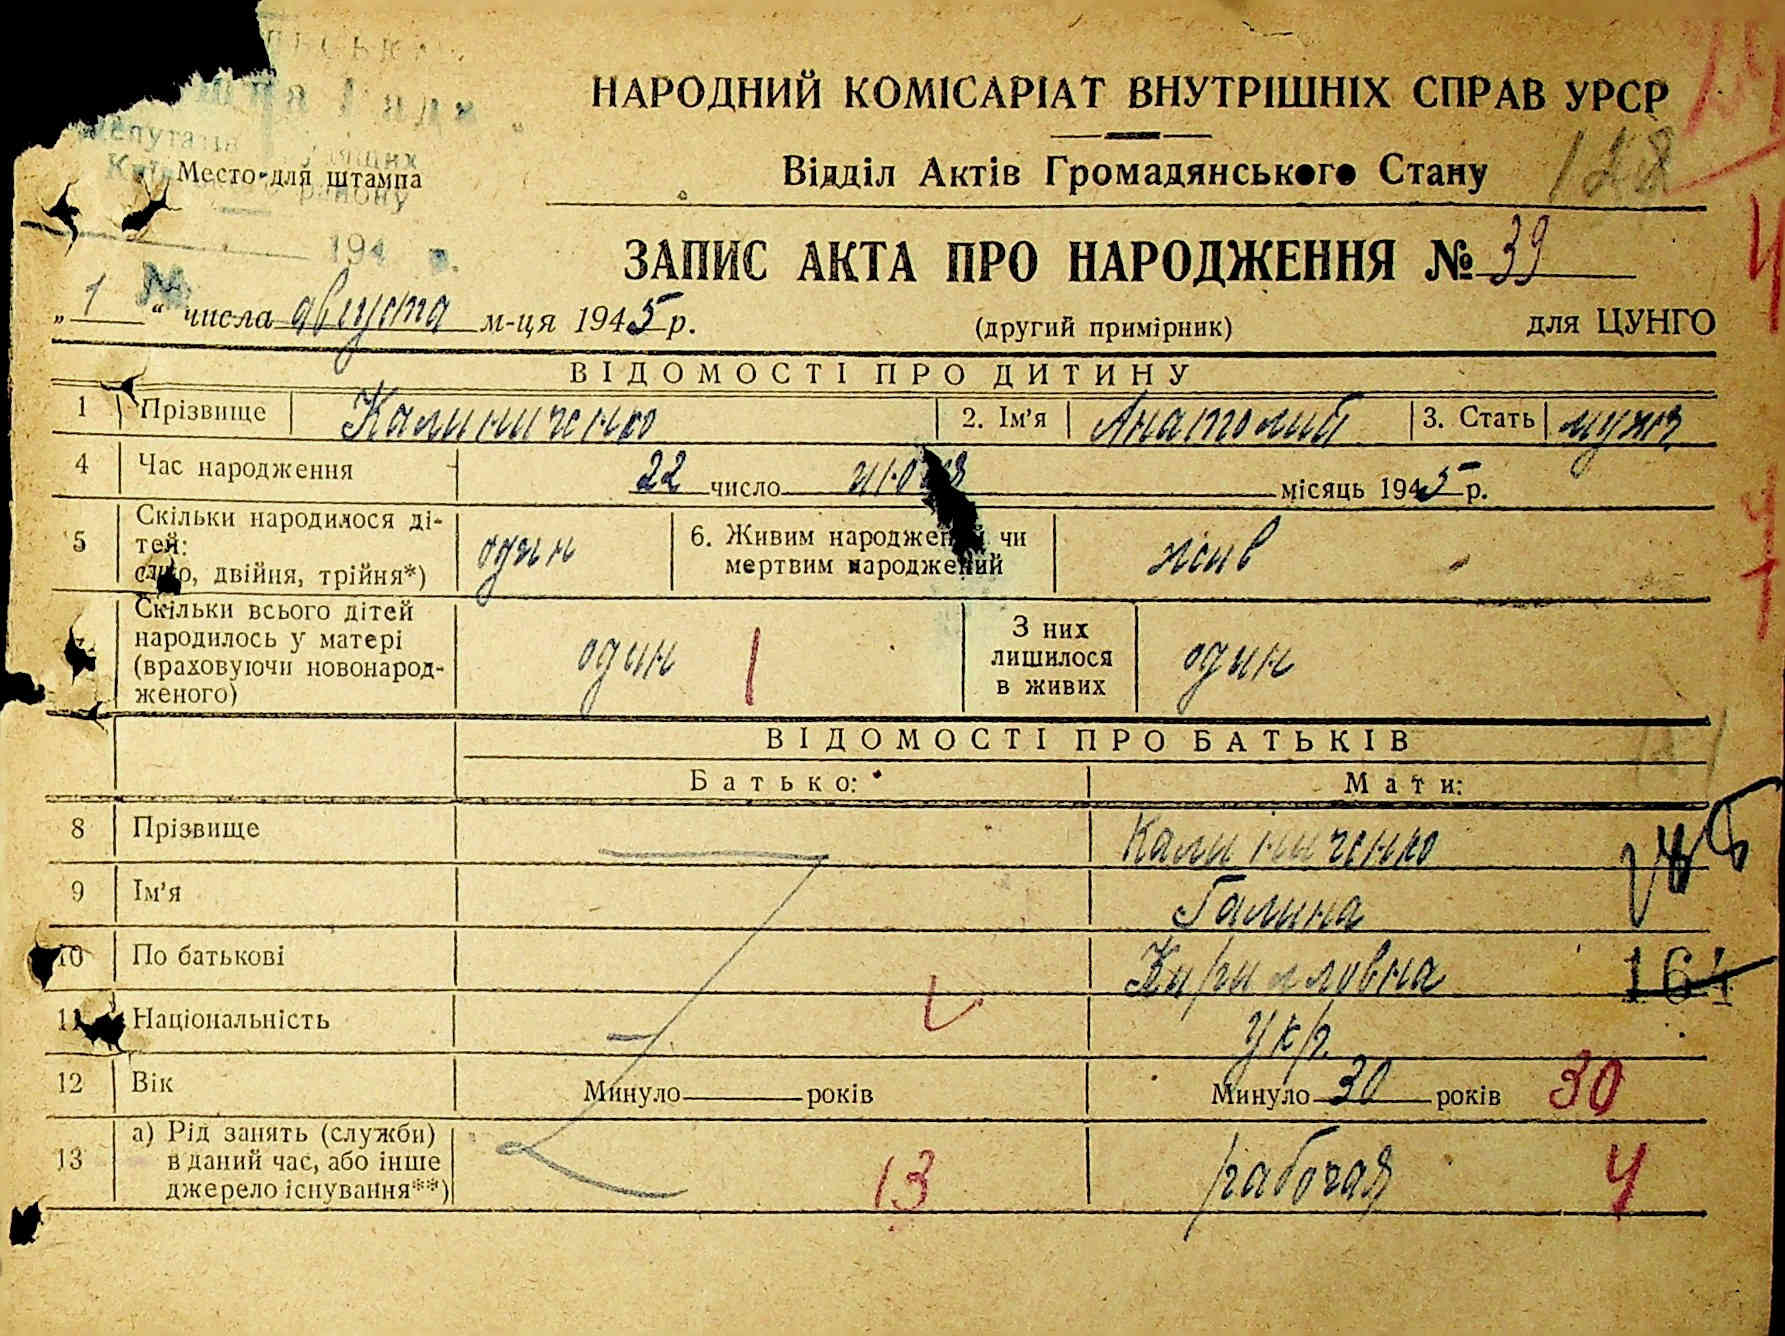 НАРОДНИЙ КОМІСАРІАТ ВНУТРІШНІХ СПРАВ УРСР
Відділ Актів Громадянського Стану
128
Место для штампа
району
194 р.
№
ЗАПИС АКТА ПРО НАРОДЖЕННЯ № 39
„1“ числа августа м-ця 1945 р.
(другий примірник)
для ЦУНГО
ВІДОМОСТІ ПРО ДИТИНУ
1 Прізвище Калиниченко 2. Ім'я Анатолий 3. Стать мужс
4 Час народження 22 число місяць 1945 р.
5 Скільки народилося ді-
тей:
двійня, трійня*)
один
6. Живим народжений чи
мертвим народжений
жив
Скільки всього дітей
народилось у матері
(враховуючи новонарод-
женого)
один 1
З них
лишилося
в живих
один
ВІДОМОСТІ ПРО БАТЬКІВ
Батько: Мати:
8 Прізвище Калиниченко
9 Ім'я Галина
10 По батькові Кирилловна
164
11 Національність укр.
12 Вік Минуло років Минуло 30 років 30
13 а) Рід занять (служби)
в даний час, або інше
джерело існування**)
13 рабочая 4